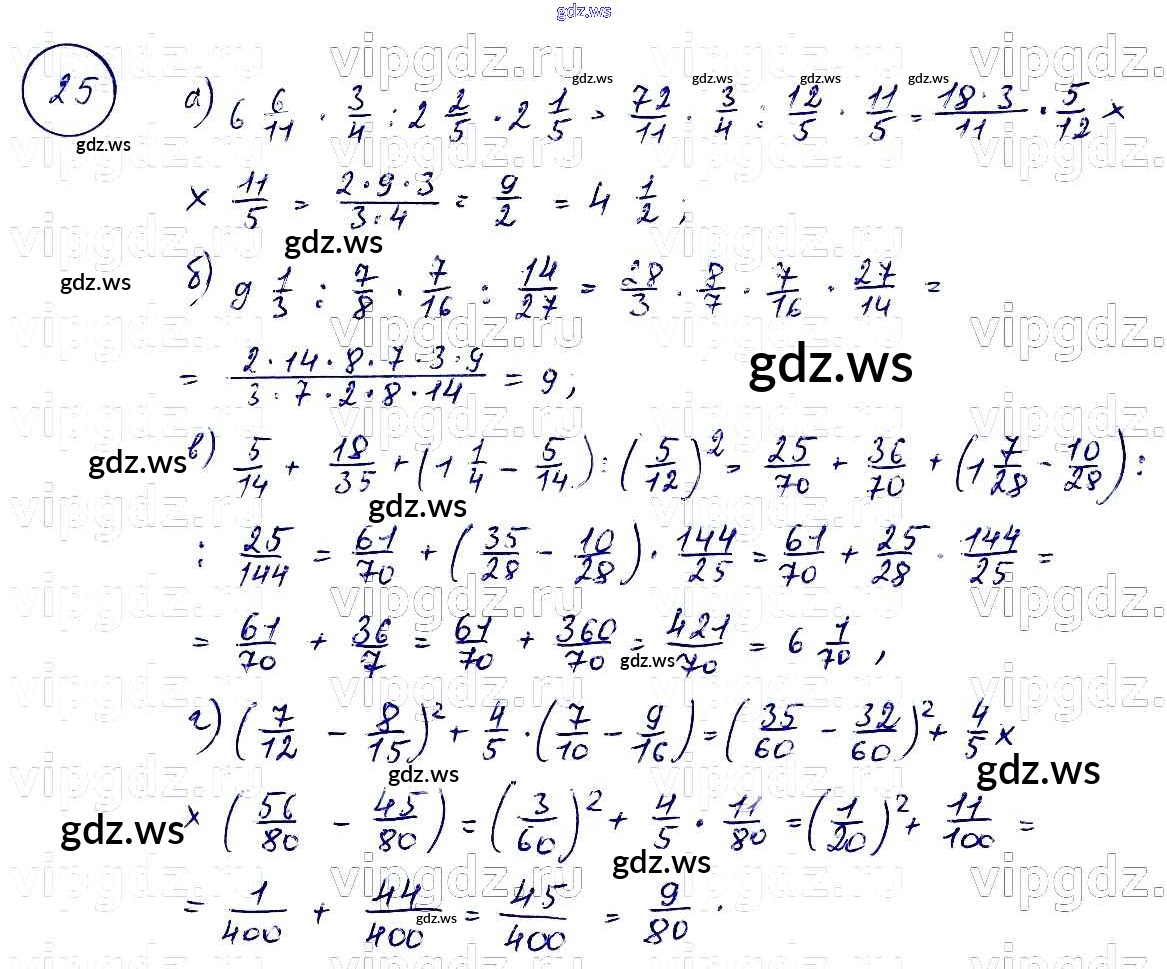 gdz.ws
25
а) 6 6/11 · 3/4 : 2 2/5 · 2 1/5 = 72/11 · 3/4 : 12/5 · 11/5 = 18·3/11 · 5/12 ×
× 11/5 = 2·9·3/3·4 = 9/2 = 4 1/2 ;
б) 9 1/3 : 7/8 · 7/16 : 14/27 = 28/3 · 8/7 · 7/16 · 27/14 =
= 2·14·8·7·3·9/3·7·2·8·14 = 9 ,
в) 5/14 + 18/35 + (1 1/4 - 5/14) : (5/12)² = 25/70 + 36/70 + (1 7/28 - 10/28) :
: 25/144 = 61/70 + (35/28 - 10/28) · 144/25 = 61/70 + 25/28 · 144/25 =
= 61/70 + 36/7 = 61/70 + 360/70 = 421/70 = 6 1/70 ,
г) (7/12 - 8/15)² + 4/5 · (7/10 - 9/16) = (35/60 - 32/60)² + 4/5 ×
× (56/80 - 45/80) = (3/60)² + 4/5 · 11/80 = (1/20)² + 11/100 =
= 1/400 + 44/400 = 45/400 = 9/80 .
vipgdz.ru
gdz.ws